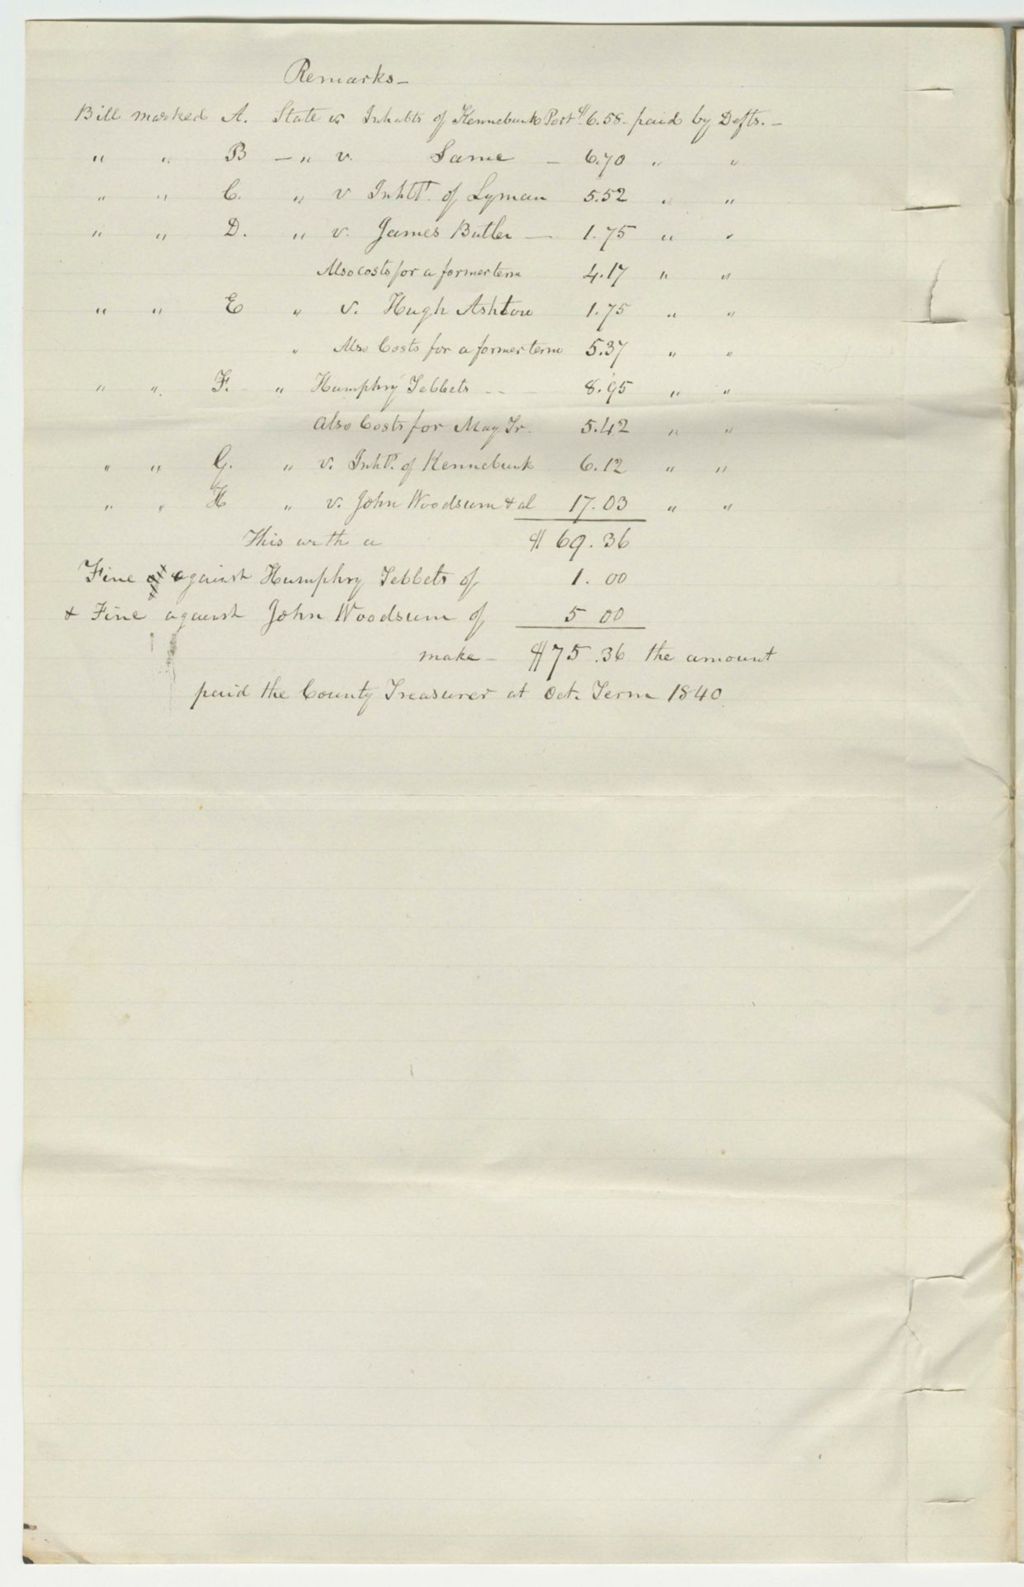 Remarks –
Bill marked A. State vs Inhabts of Kennebunk Port $6.58 – paid by Defts. –
" " B – " v. Same – 6.70 " "
" " C. " v Inhbts. of Lyman 5.52 " "
" " D. " v. James Butler – 1.75 " "
Also costs for a former term 4.17 " "
" " E " v. Hugh Ashton 1.75 " "
" Also Costs for a former term 5.37 " "
" " F. " Humphry Tebbets – – 8.95 " "
Also Costs for May Tr. 5.42 " "
" " G. " v. Inhts. of Kennebunk 6.12 " "
" " H " v. John Woodsum & al 17.03 " "
This with a $69.36
Fine against Humphry Tebbets of 1.00
& Fine against John Woodsum of 5 00
make – $75.36 the amount
paid the County Treasurer at Oct. Term 1840.